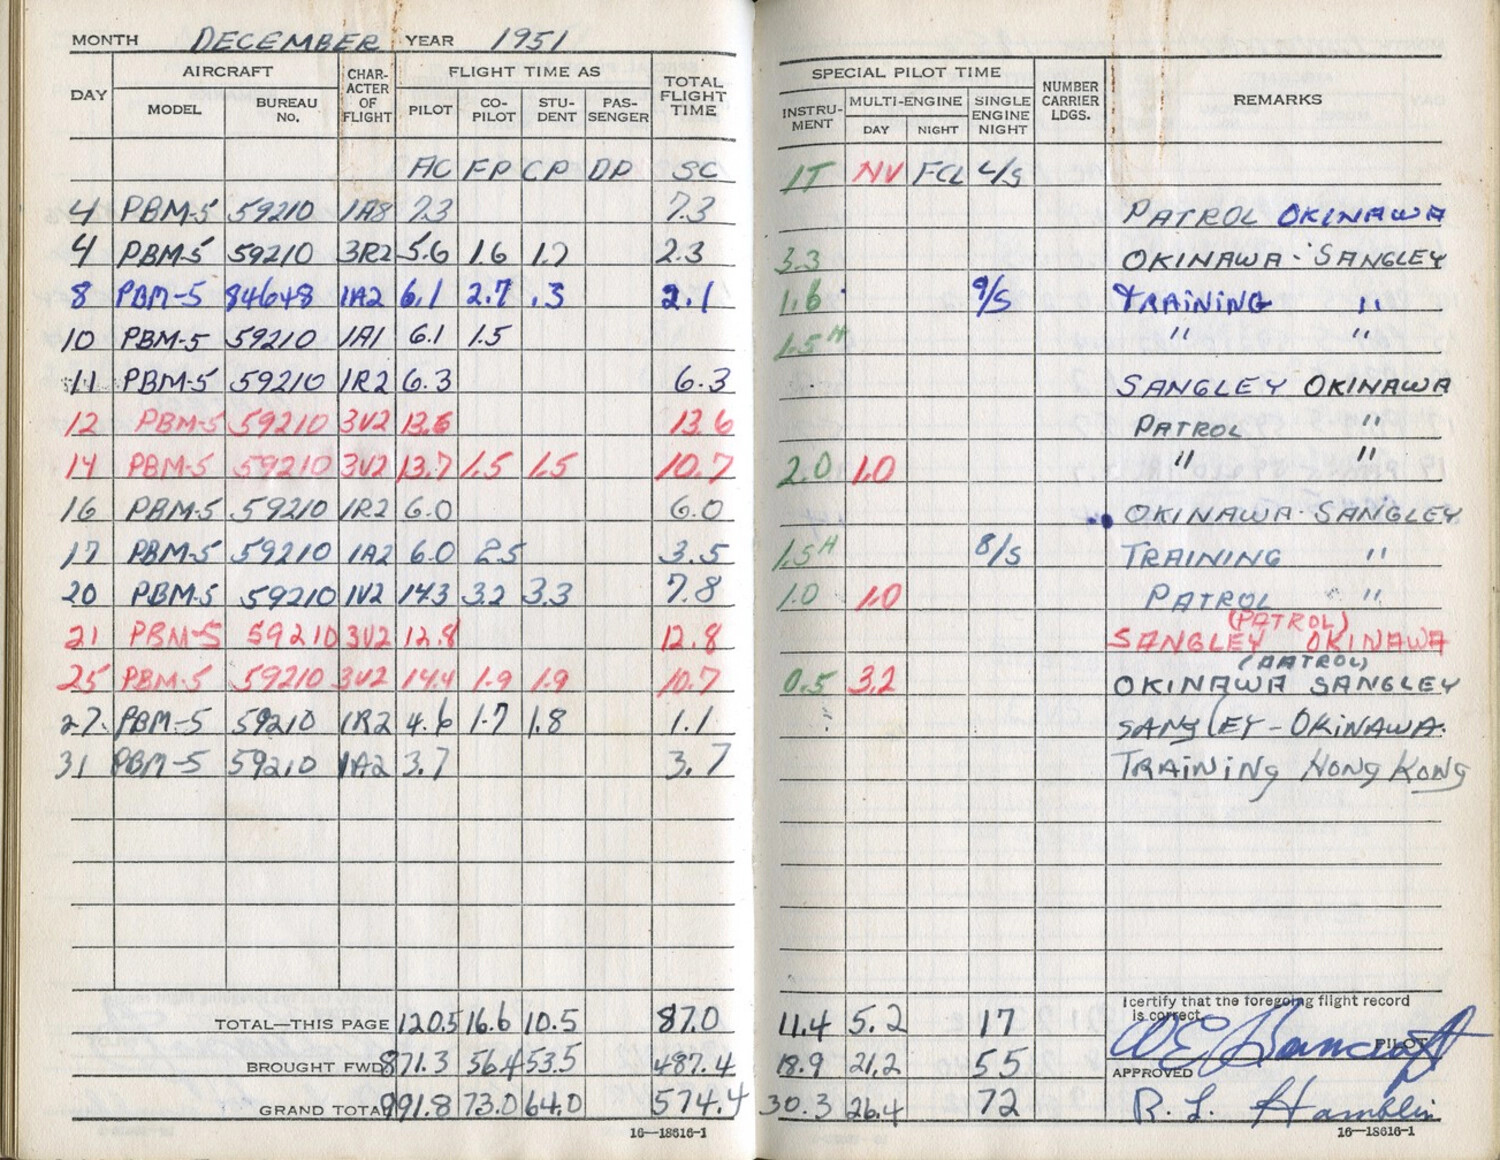 MONTH DECEMBER YEAR 1951
DAY AIRCRAFT CHAR-ACTER OF FLIGHT FLIGHT TIME AS TOTAL FLIGHT TIME
MODEL BUREAU No. PILOT CO-PILOT STU-DENT PAS-SENGER
AC FP CP DP SC
4 PBM-5 59210 1A8 7.3 7.3
4 PBM-5 59210 3R2 5.6 1.6 1.7 2.3
8 PBM-5 84648 1A2 6.1 2.7 .3 2.1
10 PBM-5 59210 1A1 6.1 1.5
11 PBM-5 59210 1R2 6.3 6.3
12 PBM-5 59210 3V2 13.6 13.6
14 PBM-5 59210 3V2 13.7 1.5 1.5 10.7
16 PBM-5 59210 1R2 6.0 6.0
17 PBM-5 59210 1A2 6.0 2.5 3.5
20 PBM-5 59210 1V2 14.3 3.2 3.3 7.8
21 PBM-5 59210 3V2 12.8 12.8
25 PBM-5 59210 3V2 14.4 1.9 1.9 10.7
27 PBM-5 59210 1R2 4.6 1.7 1.8 1.1
31 PBM-5 59210 1A2 3.7 3.7
TOTAL—THIS PAGE 120.5 16.6 10.5 87.0
BROUGHT FWD 871.3 56.4 53.5 487.4
GRAND TOTAL 991.8 73.0 64.0 574.4
16—18616-1
SPECIAL PILOT TIME NUMBER CARRIER LDGS. REMARKS
INSTRU-MENT MULTI-ENGINE SINGLE ENGINE NIGHT
DAY NIGHT
IT NV FCL L/S
PATROL OKINAWA
3.3 OKINAWA - SANGLEY
1.6 9/S TRAINING "
1.5 H " "
SANGLEY OKINAWA
PATROL "
2.0 1.0 " "
OKINAWA - SANGLEY
1.5 H 8/S TRAINING "
1.0 1.0 PATROL "
(PATROL)
SANGLEY OKINAWA
(PATROL)
0.5 3.2 OKINAWA SANGLEY
SANGLEY - OKINAWA.
TRAINING HONG KONG
I certify that the foregoing flight record is correct.
11.4 5.2 17
WE Bancroft PILOT
18.9 21.2 55
APPROVED
30.3 26.4 72 R. L. Hamblin
16—18616-1